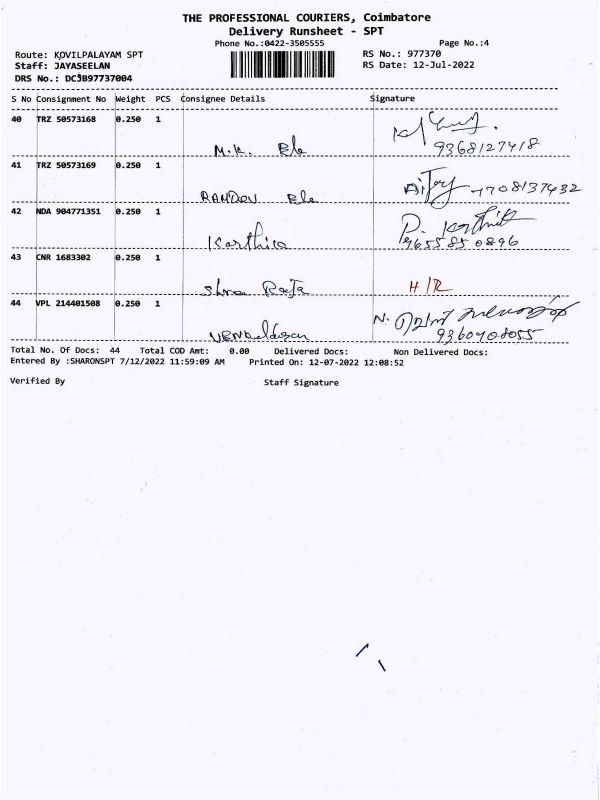 THE PROFESSIONAL COURIERS, Coimbatore
Delivery Runsheet - SPT
Phone No.:0422-3505555 Page No.:4
Route: KOVILPALAYAM SPT RS No.: 977370
Staff: JAYASEELAN RS Date: 12-Jul-2022
DRS No.: DC3B97737004
S No Consignment No Weight PCS Consignee Details Signature
40 TRZ 50573168 0.250 1
M.K. Ele 9368127418
41 TRZ 50573169 0.250 1
7708137432
42 NDA 904771351 0.250 1 P. Karthik
Karthica 9655850896
43 CNR 1683302 0.250 1
Shra Raja H/R
44 VPL 214401508 0.250 1 N.
9360408055
Total No. Of Docs: 44 Total COD Amt: 0.00 Delivered Docs: Non Delivered Docs:
Entered By :SHARONSPT 7/12/2022 11:59:09 AM Printed On: 12-07-2022 12:08:52
Verified By Staff Signature